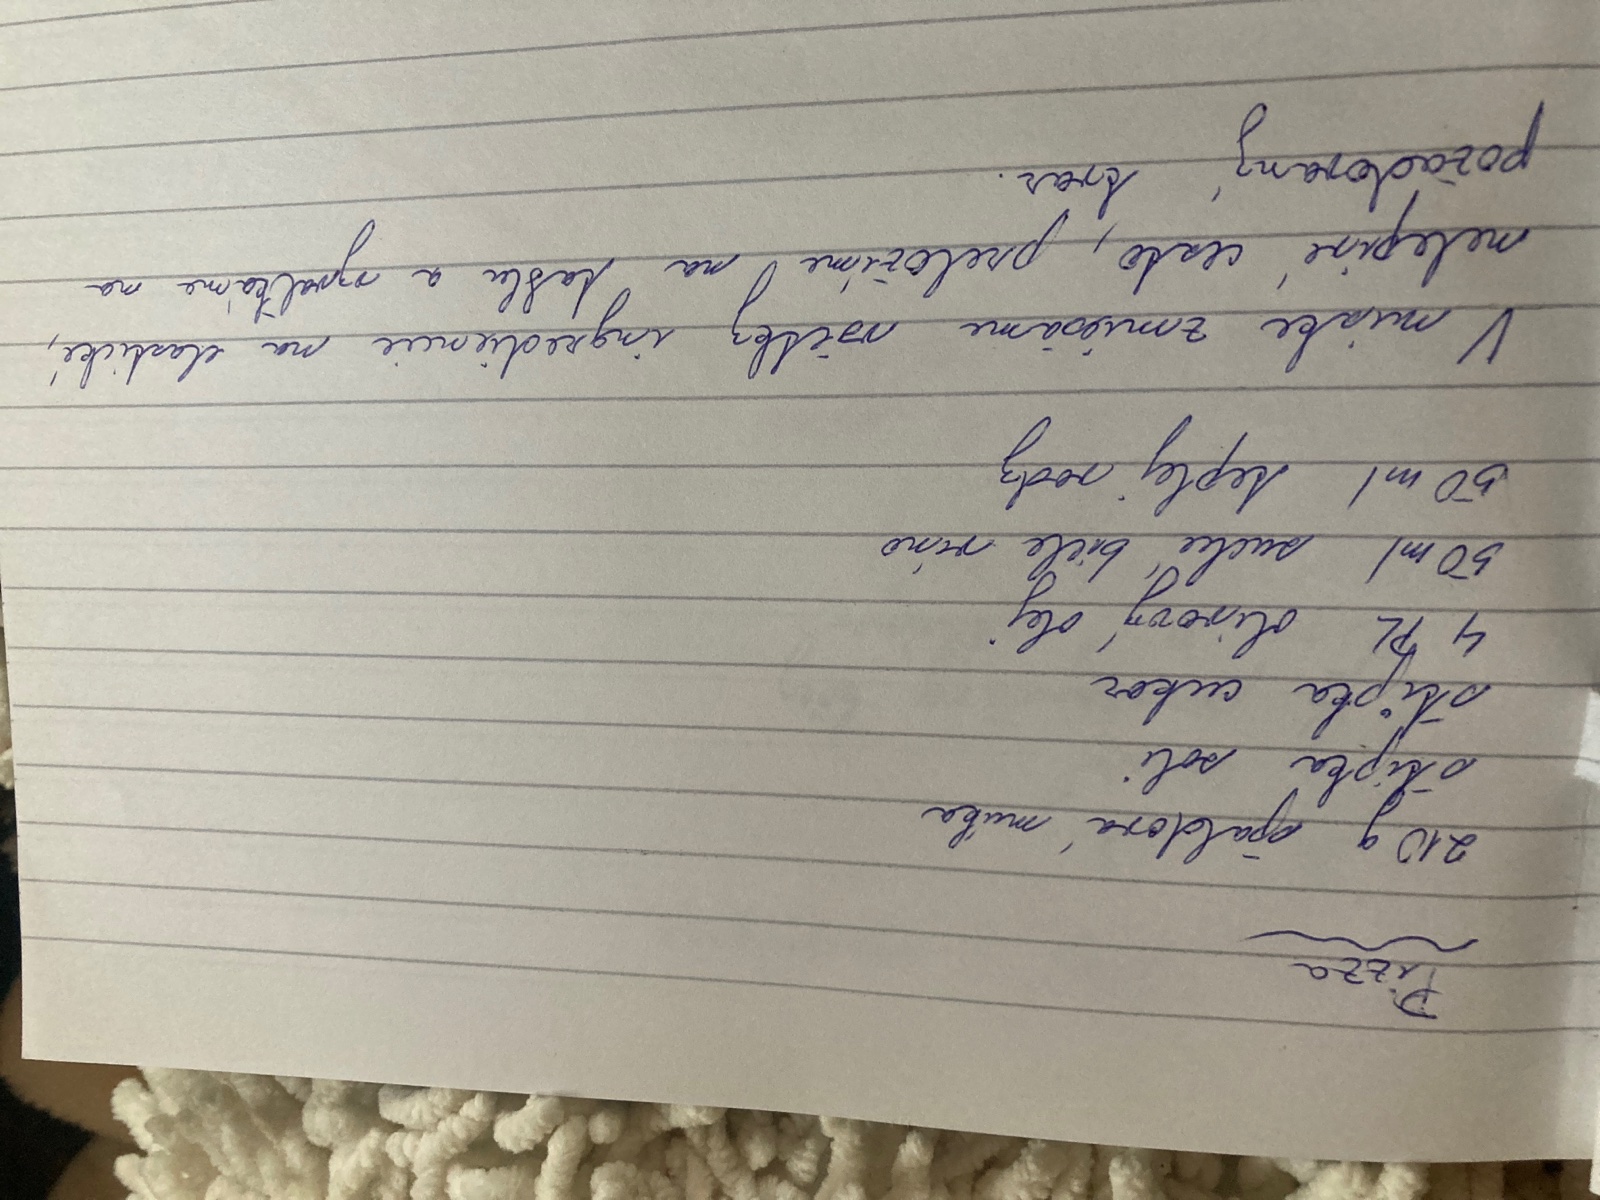 Pizza
210 g špaldová múka
štipka soli
štipka cukor
4 PL olivový olej
50 ml suché biele víno
50 ml teplej vody
V miske zmiešame všetky ingrediencie na elastické,
nelepivé cesto, preložíme na dosku a vyvaľkáme na
požadovaný tvar.